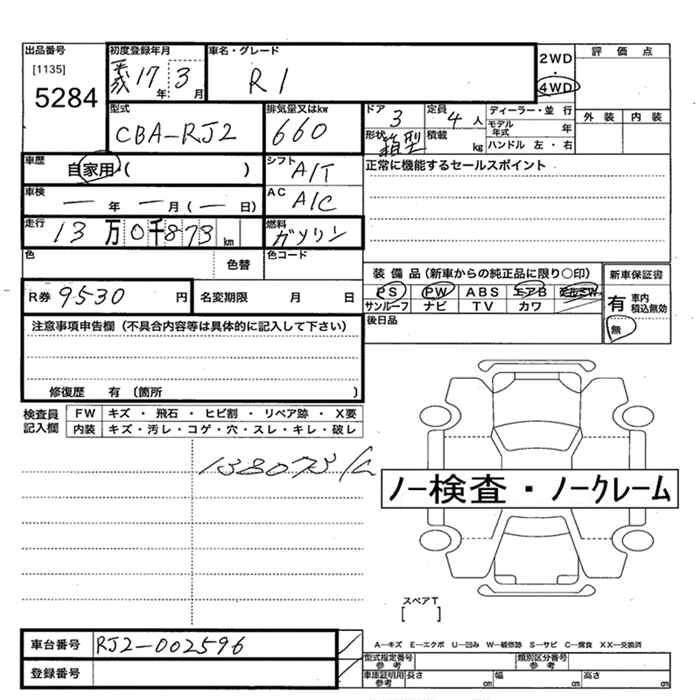 出品番号 初度登録年月 車名・グレード 2WD・4WD 評価点
[1135] 17年 3月 R1
5284
型式 排気量又はkw ドア 定員 ディーラー・並行 外装 内装
CBA-RJ2 660 3 4人 モデル年式 年
形状 箱型 積載 kg ハンドル 左・右
車歴 自家用・( ) シフト A/T 正常に機能するセールスポイント
車検 ―年 ―月(―日) AC A/C
走行 13万0千873km 燃料 ガソリン
色 色替 色コード
装備品(新車からの純正品に限り○印) 新車保証書
R券 9530円 名変期限 月 日 PS PW ABS エアB 有 車内積込無効
サンルーフ ナビ TV カワ 無
注意事項申告欄(不具合内容等は具体的に記入して下さい) 後日品
修復歴 有(箇所 )
検査員記入欄 FW キズ・飛石・ヒビ割・リペア跡・X要
内装 キズ・汚レ・コゲ・穴・スレ・キレ・破レ
138073
ノー検査・ノークレーム
スペアT
[ ]
A―キズ E―エクボ U―凹み W―補修跡 S―サビ C―腐食 XX―交換済
車台番号 RJ2-002596 型式指定番号 参考 類別区分番号 参考
登録番号 車庫証明用 参考 長さ cm 幅 cm 高さ cm